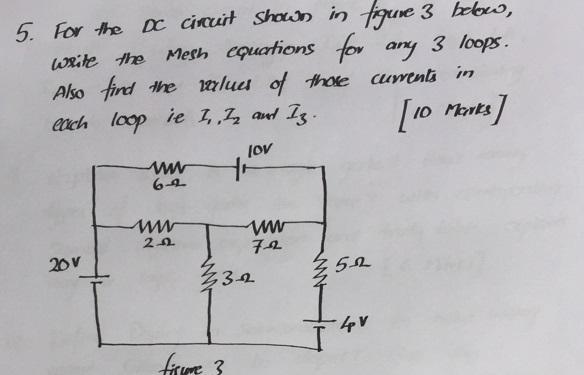 5. For the DC circuit shown in figure 3 below,
write the Mesh equations for any 3 loops.
Also find the values of those currents in
each loop ie I1, I2 and I3. [10 Marks]
10V
6Ω
2Ω 7Ω
20V 3Ω 5Ω
4V
figure 3